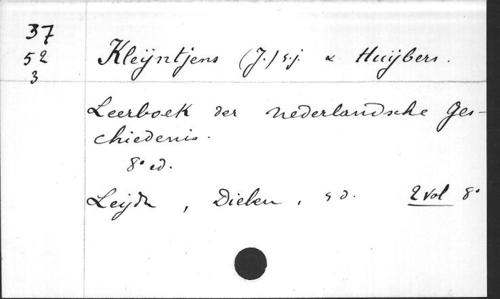 37
52 Kleijntjens (J.) s.j. & Huijbers.
3
Leerboek der nederlandsche Ges-
chiedenis.
8e ed.
Leijde, Dieben, s d. 2 vol 8°